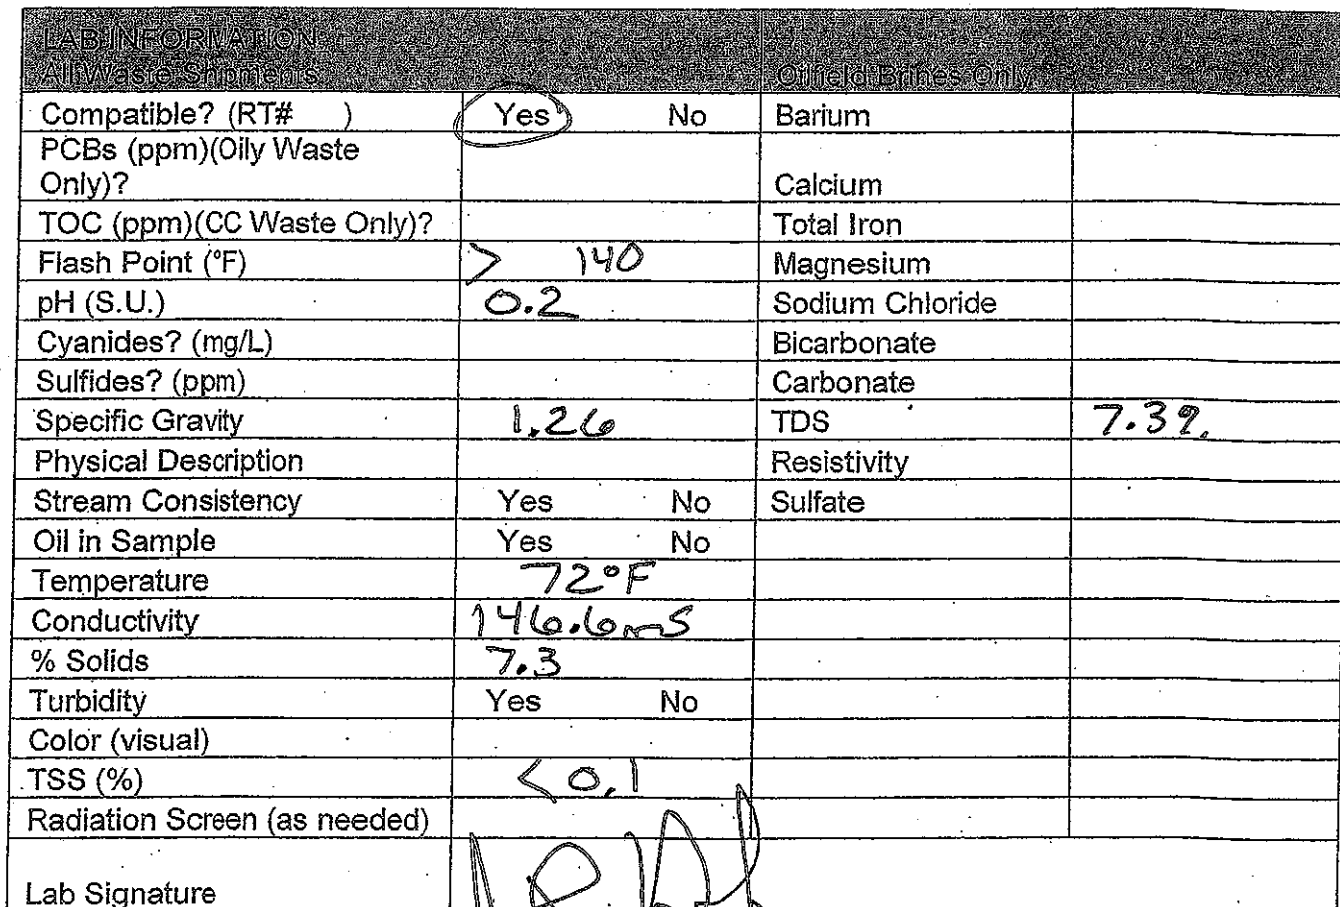 LAB INFORMATION
All Waste Shipments Oilfield Brines Only
Compatible? (RT# ) Yes No Barium
PCBs (ppm)(Oily Waste
Only)? Calcium
TOC (ppm)(CC Waste Only)? Total Iron
Flash Point (°F) > 140 Magnesium
pH (S.U.) 0.2 Sodium Chloride
Cyanides? (mg/L) Bicarbonate
Sulfides? (ppm) Carbonate
Specific Gravity 1.26 TDS 7.3%
Physical Description Resistivity
Stream Consistency Yes No Sulfate
Oil in Sample Yes No
Temperature 72°F
Conductivity 146.6mS
% Solids 7.3
Turbidity Yes No
Color (visual)
TSS (%) <0.1
Radiation Screen (as needed)
Lab Signature